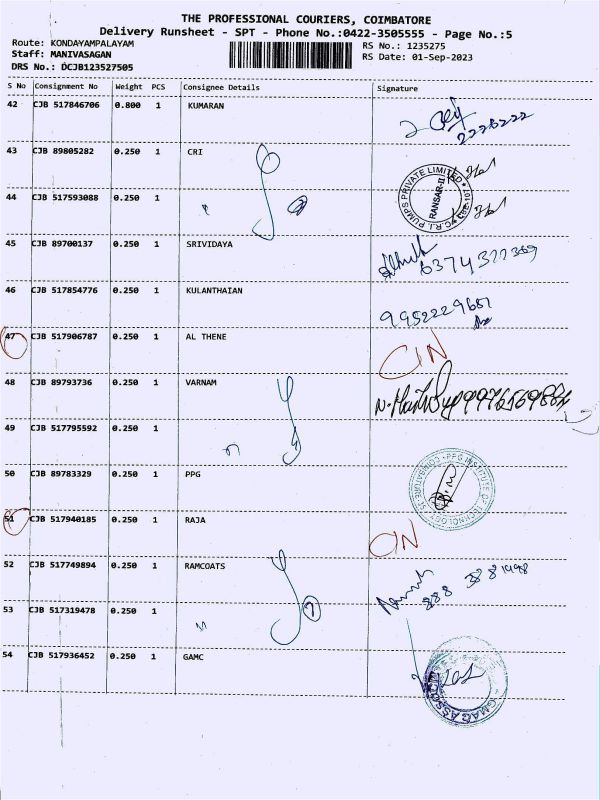 THE PROFESSIONAL COURIERS, COIMBATORE
Delivery Runsheet - SPT - Phone No.:0422-3505555 - Page No.:5
Route: KONDAYAMPALAYAM
RS No.: 1235275
Staff: MANIVASAGAN
RS Date: 01-Sep-2023
DRS No.: DCJB123527505
S No Consignment No Weight PCS Consignee Details Signature
42 CJB 517846706 0.800 1 KUMARAN
2228222
43 CJB 89805282 0.250 1 CRI
C.R.I. PUMPS PRIVATE LIMITED
RANSAR-II
44 CJB 517593088 0.250 1
45 CJB 89700137 0.250 1 SRIVIDAYA
6374322359
46 CJB 517854776 0.250 1 KULANTHAIAN
9952229687
47 CJB 517906787 0.250 1 AL THENE
CIN
48 CJB 89793736 0.250 1 VARNAM
49 CJB 517795592 0.250 1
50 CJB 89783329 0.250 1 PPG
PPG INSTITUTE OF TECHNOLOGY
51 CJB 517940185 0.250 1 RAJA
CIN
52 CJB 517749894 0.250 1 RAMCOATS
888 3881998
53 CJB 517319478 0.250 1
54 CJB 517936452 0.250 1 GAMC